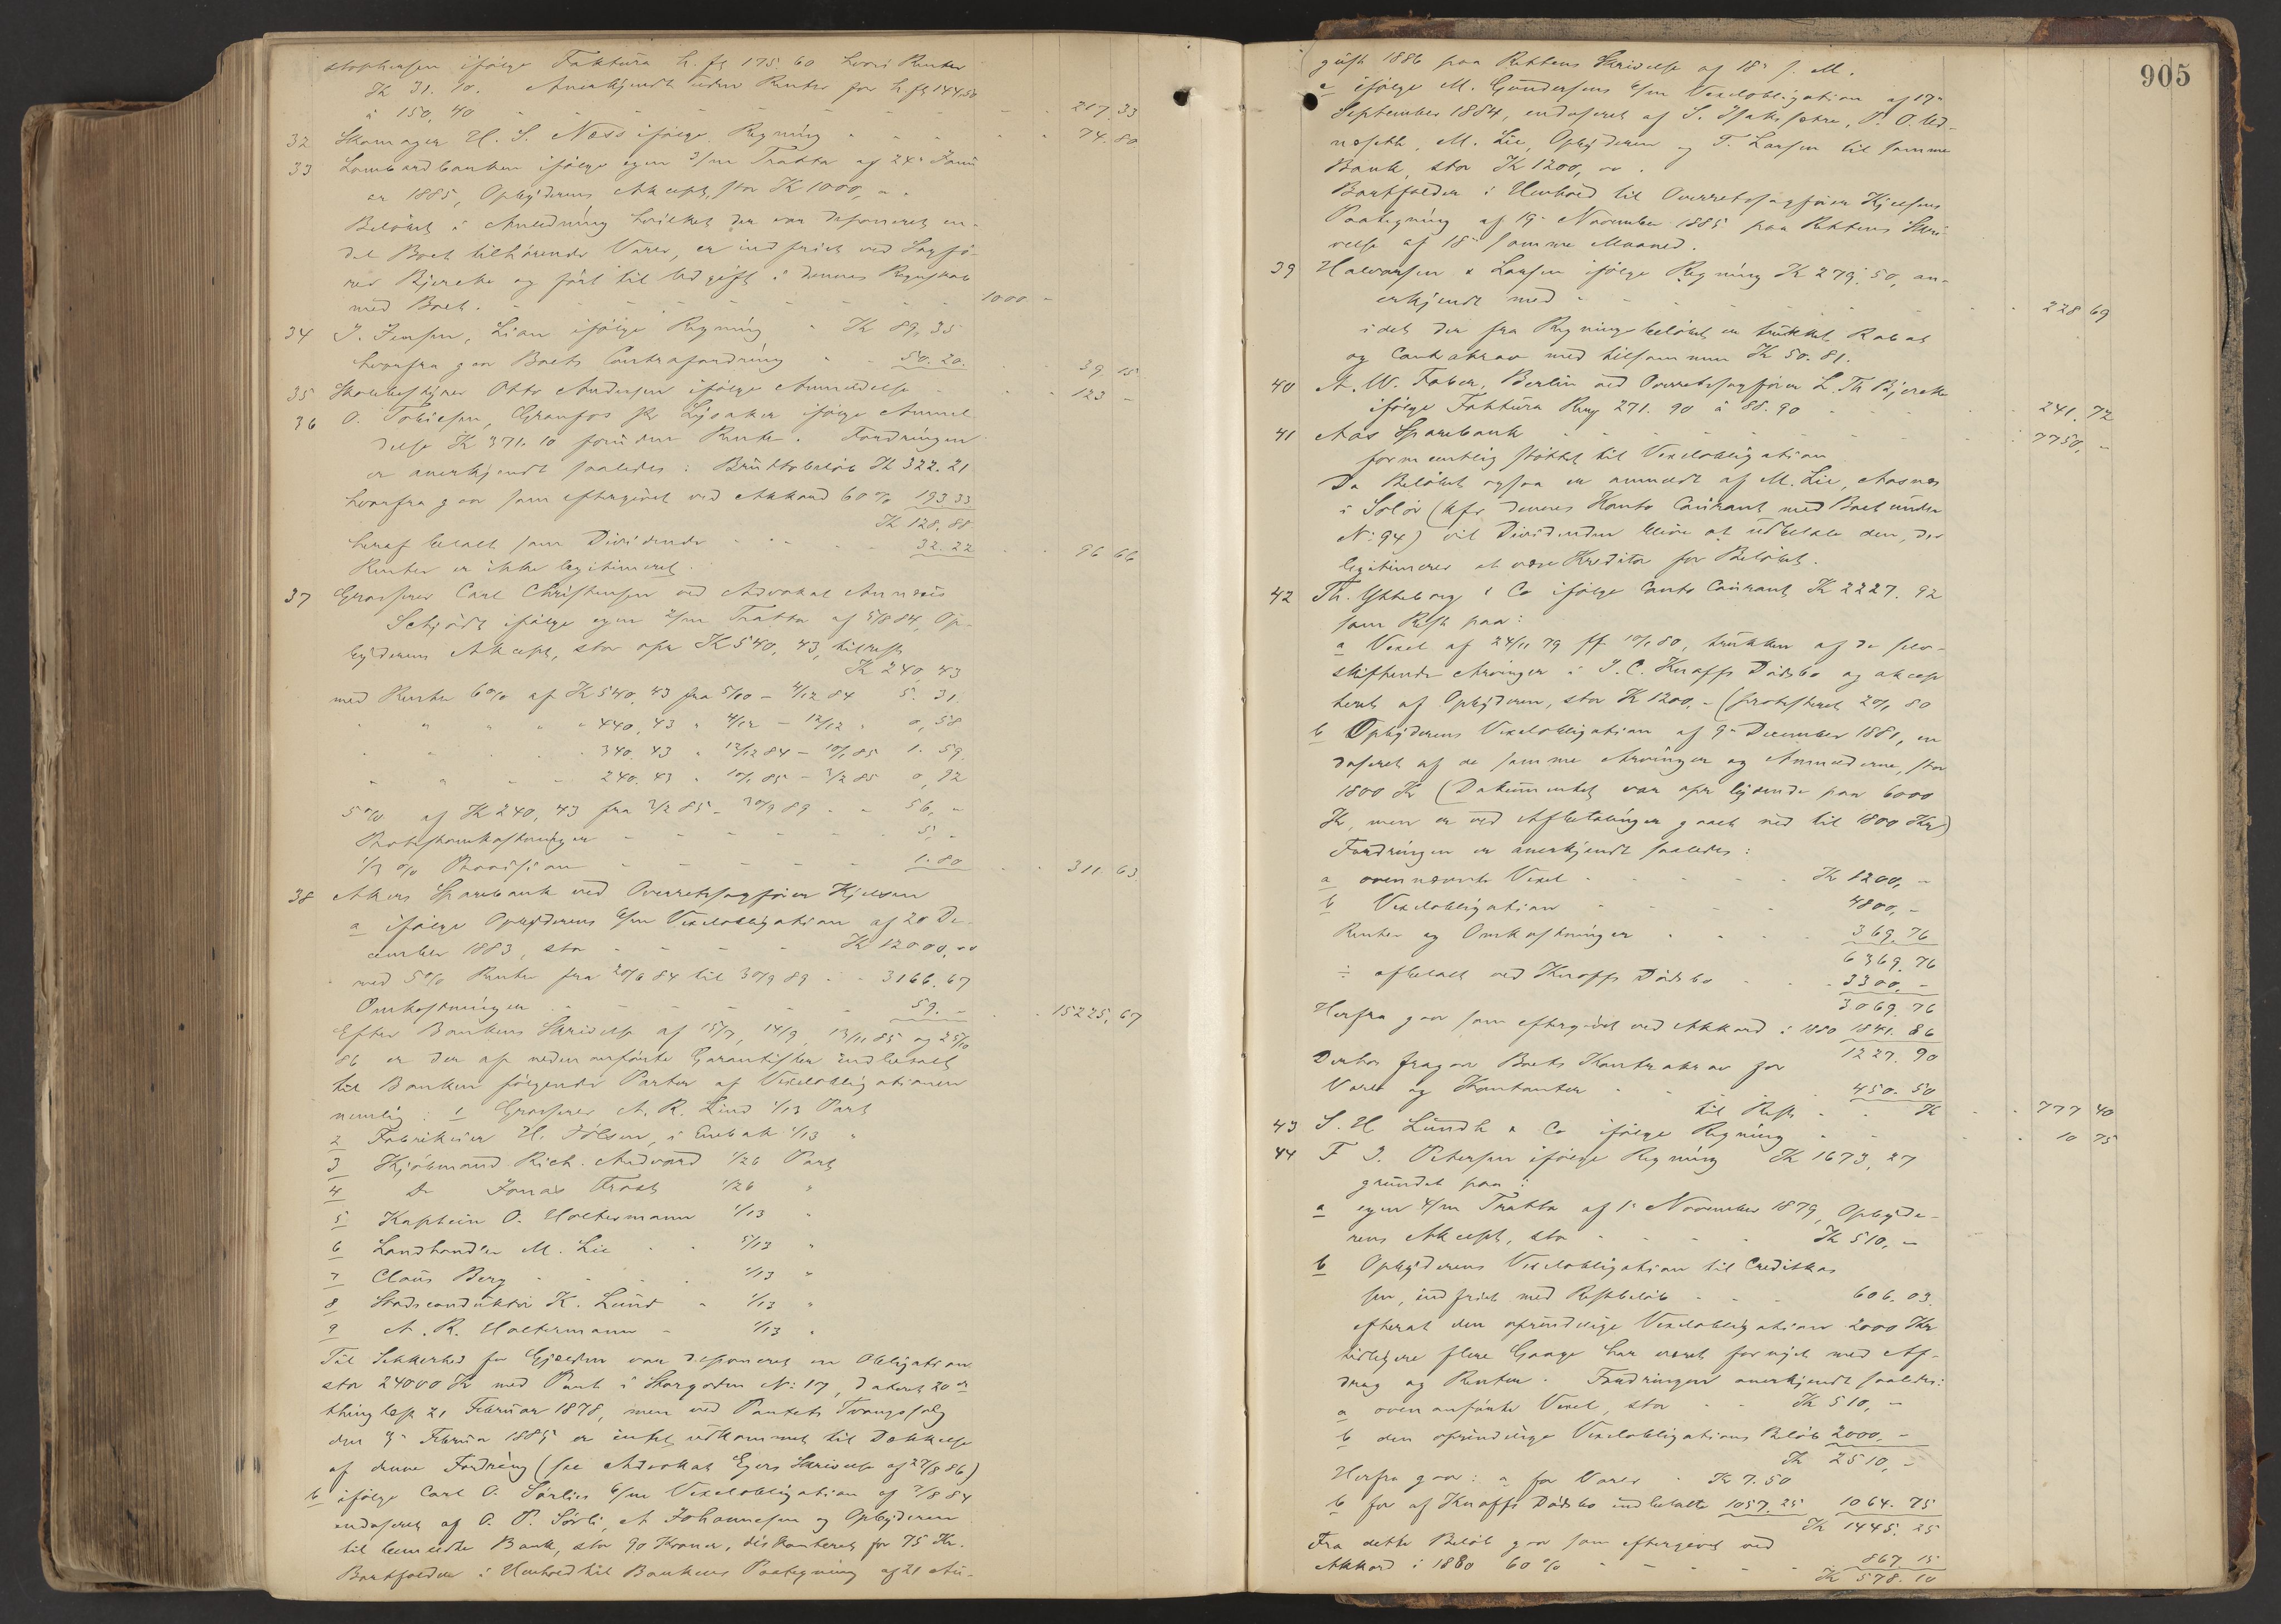 stophersen ifølge Faktura h. fl 175. 60 hvori Renter
Kr 31. 10. Anerkjendt uden Renter for h. fl 144.50
à 150,40 - - - - - - 217.33
32 Skomager H. S. Næss ifølge Regning - - - 74.80
33 Lombardbanken ifølge egen 3/m Tratta af 24 Janu
ar 1885, Opbyderens Akcept, stor Kr 1000, - -
Beløbet i Anledning hvilket der var deponeret en-
del Boet tilhørende Varer, er indfriet ved Sagfø-
rer Bjercke og ført til Udgift i dennes Regnskab
med Boet. - - - - - - 1000 -
34 J. Jensen, Lian ifølge Regning - Kr 89,35
hvorfra gaar Boets Contrafordring - - 50.20. - - 39.15
35 Skolebestyrer Otto Andersen ifølge Anmeldelse - - - 123 -
36 O. Tobiesen, Granfos pr Lysaker ifølge Anmel-
delse Kr 371.10 foruden Renter. Fordringen
er anerkjendt saaledes: Bruttobeløb Kr 322.21
hvorfra gaar som eftergivet ved Akkord 60 % 193 33
Kr 128.88
heraf betalt som Dividende - - - - 32.22 - - 96 66
Renter er ikke legitimeret.
37 Grosserer Carl Christensen ved Advokat Annæus
Schjødt ifølge egen 2/m Tratta af 5/8 84, Op-
byderens Akcept, stor opr Kr 540,43, tilrest
Kr 240,43
med Renter 6 % af Kr 540,43 fra 5/10 - 4/12 84 5. 31.
" " " " " 440,43 " 4/12 - 12/12 " 0,58
" " " " 340.43 " 12/12 84 - 10/1 85 1. 59.
" " " " 240.43 " 10/1 85 - 3/2 85 0,92
5 % af Kr 240,43 fra 3/2 85 - 30/9 89 - - 56, -
Protestomkostninger - - - - - 5. -
1/3 % Provision - - - - - 1.80 - - 311.63
38 Akers Sparebank ved Overretssagfører Hjelsen
a ifølge Opbyderens 6/m Vexelobligation af 20 De-
cember 1883, stor - - - - Kr 12000,00
med 5 % Rente fra 20/6 84 til 30/9 89 - - 3166.67
Omkostninger - - - - - 59. - - - 15225,67
Efter Bankens Skrivelse af 15/7, 14/9, 13/11 85 og 25/10
86 er der af nedenanførte Garantister indbetalt
til Banken følgende Parter af Vexelobligationen
nemlig: 1 Grosserer A. R. Lind 1/13 Part
2 Fabrikeier H. Tølsen, i Enebak 1/13 "
3 Kjøbmand Rich. Andvord 1/26 Part
4 Do Jonas Frost 1/26 "
5 Kaptein O. Holtermann 1/13 "
6 Landhandler M. Lie - - 5/13 "
7 Claus Berg - - - - 1/13 "
8 Stadsconduktør K. Lund - 1/13 "
9 A. R. Holtermann - 1/13 "
Til Sikkerhed for Gjælden var deponeret en Obligation
stor 24000 Kr med Pant i Storgaden No 17, dateret 20 de
thinglæst 21 Februar 1878, men ved Pantets Tvangssalg
den 3 Februar 1885 er intet udkommet til Dækkelse
af denne Fordring (see Advokat Egers Skrivelse af 27/8 86)
b ifølge Carl O. Sørlies 6/m Vexelobligation af 7/8 84
endosseret af O. P. Sørli, A Johannesen og Opbyderen
til bemeldte Bank, stor 90 Kroner, diskonteret for 75 Kr.
Bortfalder i Henhold til Bankens Paategning af 21 Au-
905
gust 1886 paa Rettens Skrivelse af 18 s. M.
c ifølge M. Gundersens 6/m Vexelobligation af 17
September 1884, endosseret af S. Isaksætre, P. O. Ud-
næseth, M. Lie, Opbyderen og T. Larsen til samme
Bank, stor Kr 1200, 00.
Bortfalder i Henhold til Overretssagfører Hjelsens
Paategning af 19 November 1885 paa Rettens Skri-
velse af 18 samme Maaned.
39 Halvorsen & Larsen ifølge Regning Kr 279.50, an-
erkjendt med - - - - - - 228 69
idet der fra Regningsbeløbet er trukket Rabat
og Contrakrav med tilsammen Kr 50.81.
40 A. W. Faber, Berlin ved Overretssagfører L. Th Bjercke
ifølge Faktura Rmg 271.90 à 88.90 - - - 241.72
41 Aas Sparebank - - - - - - 7750, -
formentlig støttet til Vexelobligation
Da Beløbet ogsaa er anmeldt af M. Lie, Aasnes
i Solør (kfr dennes Konto Courant med Boet under
No 94) vil Dividenden blive at udbetale den, der
legitimerer at være Kreditor for Beløbet.
42 Th. Ytteborg & Co ifølge Conto Courant Kr 2227.92
som Rest paa:
a Vexel af 24/11 79 ff 10/1 80, trukken af de selv-
skiftende Arvinger i J. C. Knoffs Dødsbo og akcep
teret af Opbyderen, stor Kr 1200. - (protesteret 20/1 80
b Opbyderens Vexelobligation af 9 December 1881, en
dosseret af de samme Arvinger og Anmelderne, stor
1800 Kr (Dokumentet var opr lydende paa 6000
Kr, men er ved Afbetalinger gaaet ned til 1800 Kr)
Fordringen er anerkjendt saaledes:
a ovennævnte Vexel - - - - Kr 1200, -
b Vexelobligation - - - - 4800, -
Renter og Omkostninger - - - 369.76
6369.76
÷ afbetalt ved Knoffs Dødsbo - - - 3300, -
3069.76
Herfra gaar som eftergivet ved Akkord i 1880 1841.86
1227.90
Derhos fragaar Boets Kontrakrav for
Varer og Kontanter - - - - 450.50
til Rest - - Kr - - 777 40
43 S. H. Lundh & Co ifølge Regning - - - 10 75
44 F J. Petersen ifølge Regning Kr 1673,27
grundet paa:
a egen 4/m Tratta af 1 November 1879, Opbyde-
rens Akcept, stor - - - - Kr 510, -
b Opbyderens Vexelobligation til Creditkas
sen, indfriet med Restbeløb - - - 606.03.
efterat den oprindelige Vexelobligation 2000 Kr
tidligere flere Gange har været fornyet med Af-
drag og Renter. Fordringen anerkjendt saaledes:
a ovenanførte Vexel, stor - - Kr 510, -
b den oprindelige Vexelobligations Beløb 2000, -
Kr 2510, -
Herfra gaar: a for Varer - Kr 7.50
b for af Knoffs Dødsbo indbetalte 1057.25 1064.75
Kr 1445.25
Fra dette Beløb gaar som eftergivet ved
Akkord i 1880 60 % - - - - 867.15
Kr 578.10